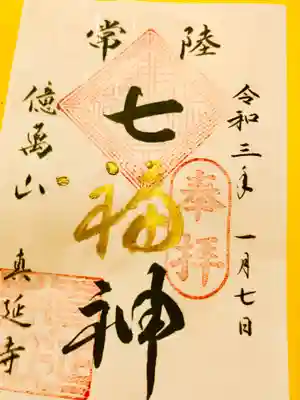 常陸
令和三年 一月七日
奉拝
七福神
億萬山
真延寺